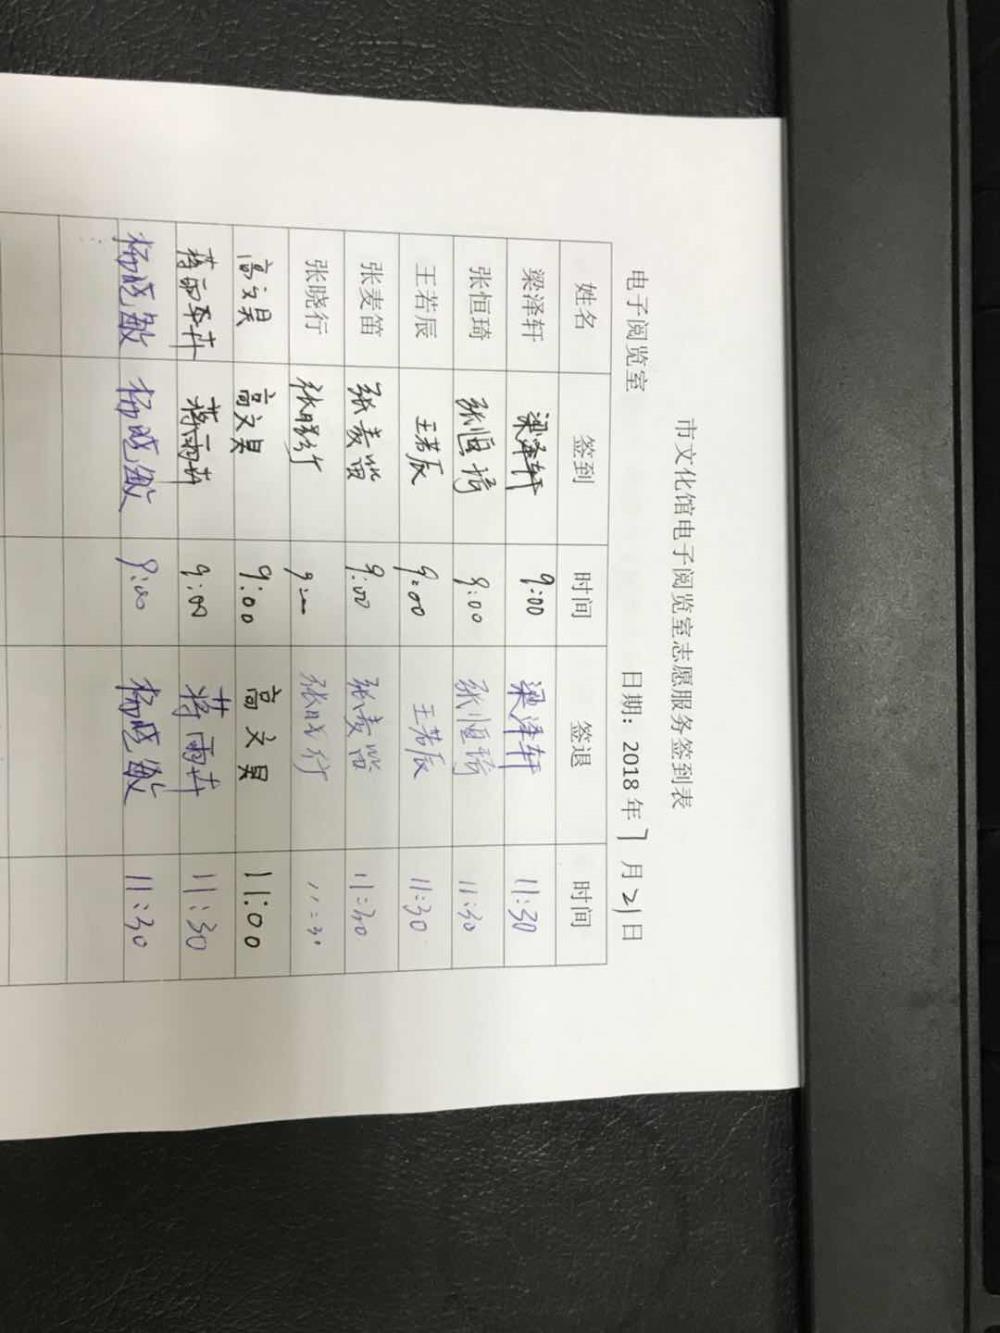 市文化馆电子阅览室志愿服务签到表
电子阅览室 日期：2018年7月21日
姓名 签到 时间 签退 时间
梁泽轩 梁泽轩 9:00 梁泽轩 11:30
张恒琦 张恒琦 9:00 张恒琦 11:30
王若辰 王若辰 9:00 王若辰 11:30
张麦笛 张麦笛 9:00 张麦笛 11:30
张晓行 张晓行 9:00 张晓行 11:30
高文昊 高文昊 9:00 高文昊 11:00
蒋雨卉 蒋雨卉 9:00 蒋雨卉 11:30
杨晓敏 杨晓敏 9:00 杨晓敏 11:30